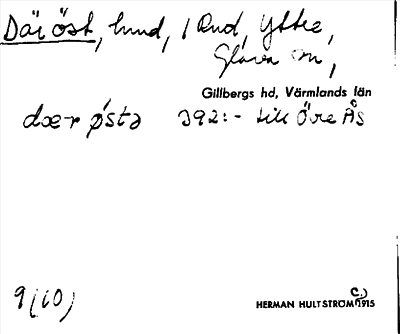 Där öst, lund, / Rud, Yttre,
Glava sn,
Gillbergs hd, Värmlands län
dær østə 392:- till Övre Ås
9(10)
HERMAN HULTSTRÖM C.) 1915